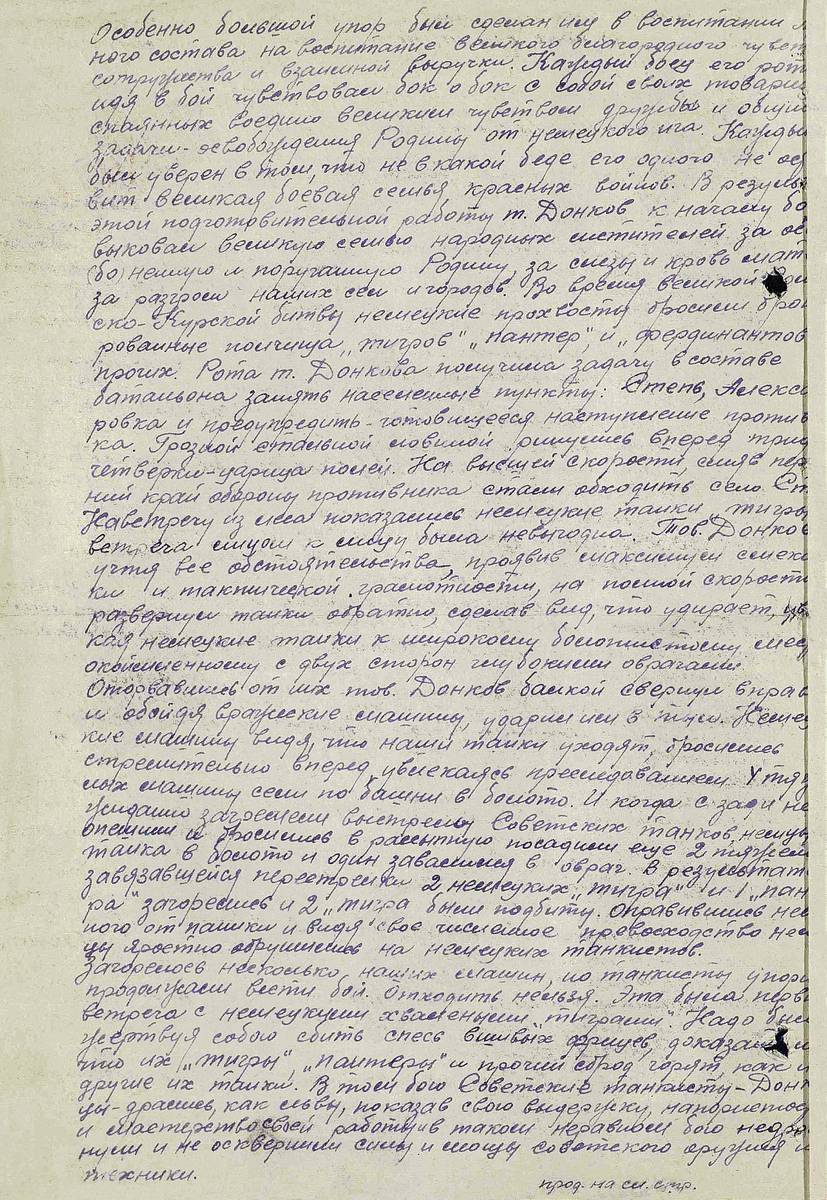 Особенно большой упор был сделан им в воспитании л
ного состава на воспитание великого благородного чувст
сотружества и взаимной выручки. Каждый боец его рот
идя в бой чувствовал бок о бок с собой своих товарищ
спаянных воедино великим чувством дружбы и общей
задачи - освобождения Родины от немецкого ига. Кажды
был уверен в том, что не в какой беде его одного не ос
вит великая боевая семья красных воинов. В резуль
этой подготовительной работы т. Донков к началу бо
выковал великую семью народных мстителей за ос
(бо)ненную и поруганную Родину, за слезы и кровь мат
за разгром наших сел и городов. Во время великой
ско-Курской битвы немецкие прохвосты бросили бро
рованные полчища „тигров" „пантер" и „фердинантов
прочих. Рота т. Донкова получила задачу в составе
батальона занять населенные пункты: Степь, Алекс
ровка и предупредить готовящееся наступление против
ка. Грозной стальной лавиной ринулись вперед трид
четверки - царица полей. На высшей скорости, смяв пер
ний край обороны противника стали обходить село Ст
Навстречу из леса показались немецкие танки „тигры
встреча лицом к лицу была невыгодна. Тов. Донков
учтя все обстоятельства, проявив максимум смек
ки и тактической грамотности, на полной скорости
развернул танки обратно, сделав вид, что удирает,
кая немецкие танки к широкому болотистому мест
окаймленному с двух сторон глубокими оврагами.
Оторвавшись от них тов. Донков балкой свернул вправ
и обойдя вражеские машины, ударил им в тыл. Немец
кие машины видя, что наши танки уходят, бросились
стремительно вперед, увлекаясь преследованием. 4 тяж
лых машины сели по башни в болото. И когда с зади не
ожиданно загремели выстрелы Советских танков, немцы
опешили и бросились в рассыпную посадили еще 2 тяжел
танка в болото и один завалился в овраг. В результат
завязавшейся перестрелки 2 немецких „тигра" и 1 „пан
ра" загорелись и 2 „тигра были подбиты. Оправившись нем
ного от паники и видя свое численное превосходство нем
цы яростно обрушились на немецких танкистов.
Загорелось несколько наших машин, но танкисты упорн
продолжали вести бой. Отходить нельзя. Эта была перв
встреча с немецкими хвалеными „тиграми". Надо был
жертвуя собою сбить спесь вшивых фрицев, доказать
что их „тигры", „пантеры" и прочий сброд горят, как и
другие их танки. В этом бою Советские танкисты - Донк
цы - дрались, как львы, показав свою выдержку, напористос
и мастерство своей работы в таком неравном бою недро
нули и не осквернили силы и мощь советского оружия и
техники.
прод. на сл. стр.